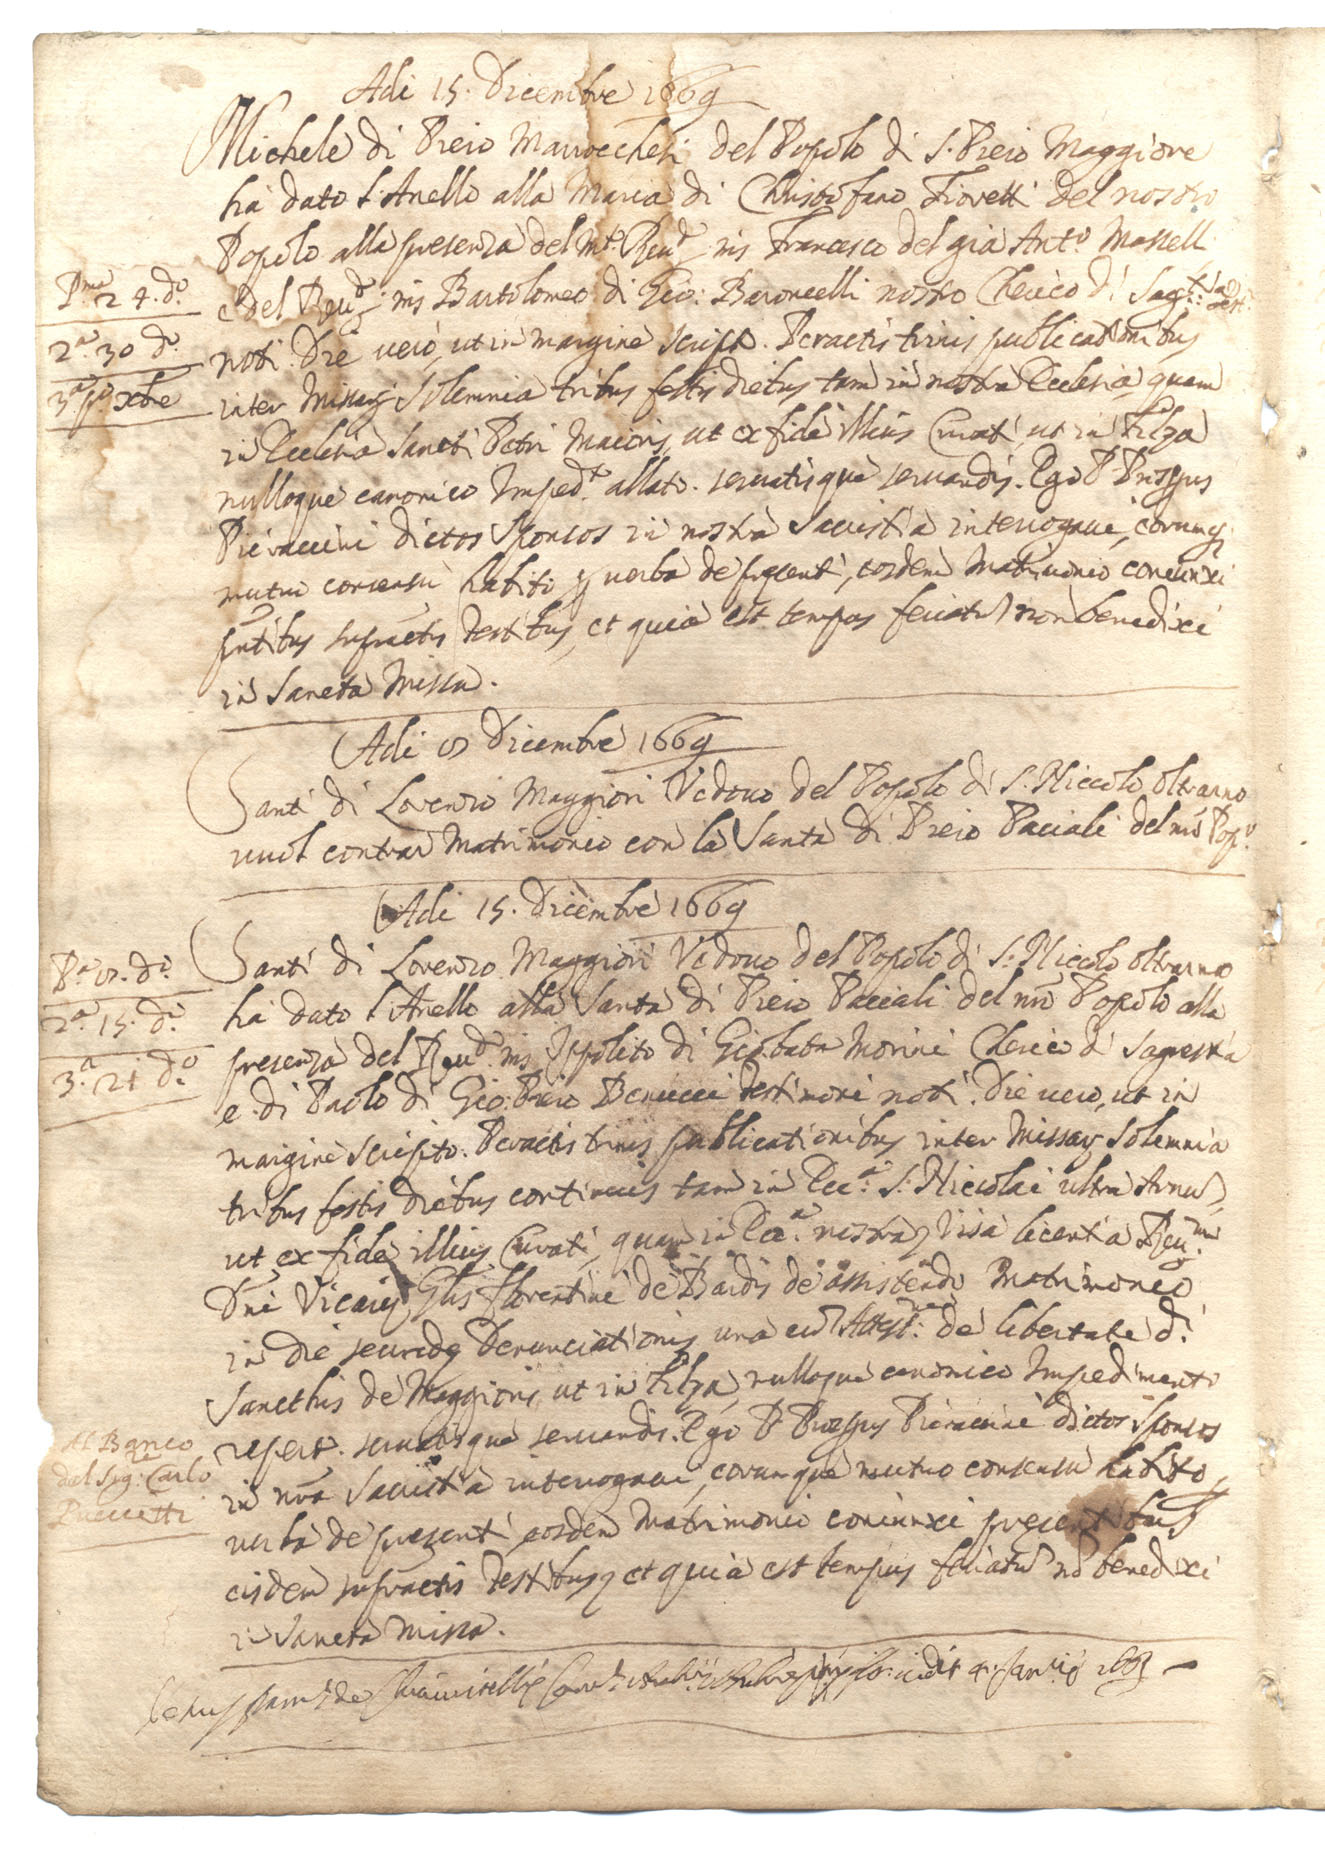 Adi 15. Dicembre 1669
Michele di Piero Marrocchesi del Popolo di S. Piero Maggiore
ha dato l'Anello alla Maria di Christofano Fioretti del nostro
Popolo alla presenza del M.to Reu.do ms Francesco del già Ant.o Masselli
P.ma 24. d.o
e del Reu.do ms Bartolomeo di Gio: Baroncelli nostro Cherico di Sag.tia
2.a 30 d.o
noti. Die uero, ut in margine script. Peractis trinis publicationibus
3.a p.o xbre
inter Missar. Solemnia tribus festis diebus tam in nostra Ecclesia, quam
in Ecclesia Sancti Petri Maioris, ut ex fide illius Curati, ut in Filza
nulloque canonico Imped.to allato. seruatisque seruandis. Ego P. Prosper
Pieraccini dictos Sponsos in nostra Sacristia interrogaui, corumq
mutuo consensu habito p uerba de presenti, eosdem Matrimonio coniunxi
pntibus supractis Testibus, et quia est tempus feriatu non benedixi
in Sancta Missa.
Adi 8 Dicembre 1669
Santi di Lorenzo Maggiori Vedouo del Popolo di S. Niccolo Oltrarno
uuol contrar Matrimonio con la Santa di Piero Paciali del nro Pop.o
Adi 15. Dicembre 1669
P.a 8. d.o
Santi di Lorenzo Maggiori Vedouo del Popolo di S. Niccolo Oltrarno
2.a 15. d.o
ha dato l'Anello alla Santa di Piero Pacciali del nro Popolo alla
3.a 21 d.o
presenza del Reu.do ms Ippolito di Gio:bata Morini Cherico di Sagrestia
e di Paolo di Gio: Piero Benucci Testimoni noti. Die uero, ut in
margine scripto. Peractis trinis publicationibus inter Missar. Solemnia
tribus festis diebus continuis tam in Ecc.a S. Niccolai ultra Arnu,
ut ex fide illius Curati, quam in Ecc.a nostra, Visa licentia Reu.mi
Dni Vicarij Glis Florentini de Bardis de assistendo Matrimonio
in die secunde Denunciationis una cu Attest.ne de libertate d.i
Sancthis de Maggioris, ut in Filza, nulloque canonico Impedimento
Al Banco
repert. seruatisque seruandis. Ego P. Prosper Pieraccini dictos Sponsos
del Sig.re Carlo
in nra Sacristia interrogaui, corumque mutuo consensu habito,
Puccetti
uerba de presenti, eosdem Matrimonio coniunxi presentibus
eisdem supractis Testibus, et quia est tempus feriatu no benedixi
in Sancta Missa.